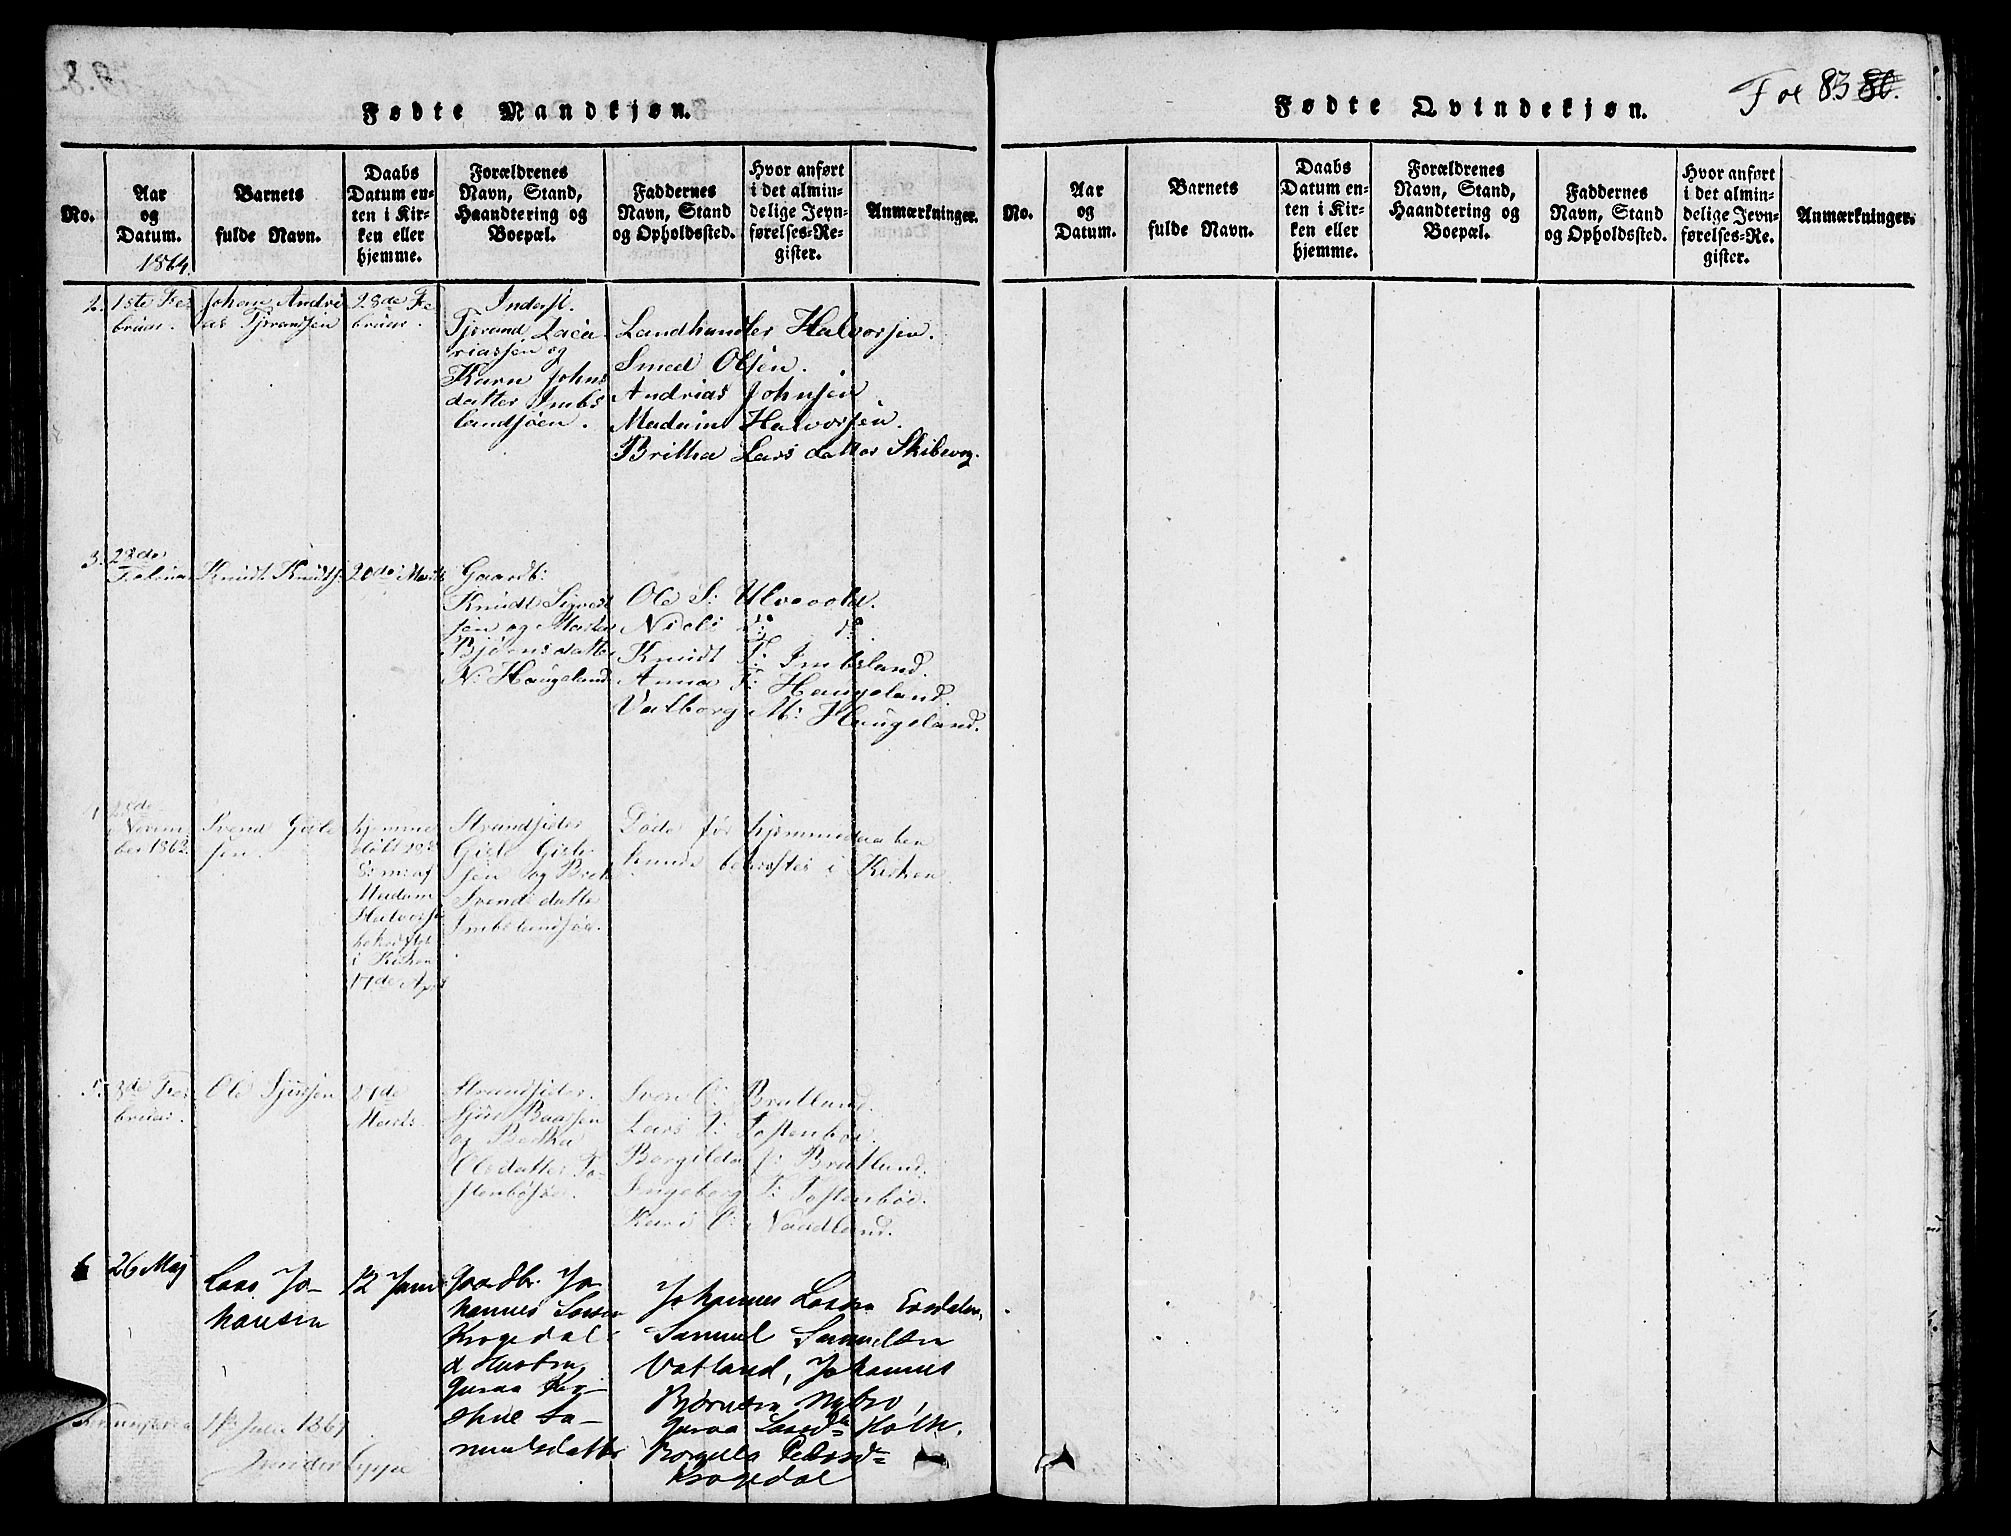 Fødte Mandkjøn.
No.
Aar og Datum.
Barnets fulde Navn.
Daabs Datum enten i Kirken eller hjemme.
Forældrenes Navn, Stand, Haandtering og Boepæl.
Faddernes Navn, Stand og Opholdssted.
Hvor anført i det almindelige Jevnførelses-Register.
Anmærkninger.
1864.
2.
1ste Februar.
Johan Andrias Tjerandsen
28de Februar.
Inderst.
Tjerand Zacariassen og
Karn Johnsdatter Imbslandsjøen.
Landhandler Halvorsen.
Smed Olsen.
Andrias Johnsen
Madam Halvorsen.
Britha Larsdatter Skibevog.
3.
28de Februar
Knudt Knudts:
20de Marts
Gaardb:
Knudt Sigvertsen og Marthe
Bjørnsdatter
N: Haugeland
Ole S: Ulvevold.
Niels do: do.
Knudt T: Imbsland.
Anna T: Haugeland.
Valborg M: Haugeland.
November 1862.
Svend Gislesen.
hjemme
af
Madam
Halvorsen
bekræftet
i Kirken
17de April
Strandsider
Gisle Gislesen og Brth
Svendsdatter
Imbslandsjøen.
Døde før hjemmedaaben
kunde bekræftes i Kirken
5.
3de Februar.
Ole Sjursen
27de Marts.
Strandsider.
Sjur Baarsen
og Bertha
Olsdatter Tostenbøsøen.
Sven O: Bratland.
Lars T: Tostenbøe.
Borgilda J: Bratland.
Ingeborg T: Tostenbøe.
Kari O: Naadland.
6
26 Maj
Lars Johansen
12 Juni
Gaardbr. Johannes Larsen
Krogedal
& Hustru
Guraa Kirstine Samuelsdatter
Johannes Larsen Evedalen,
Samuel Samuelsen
Vatland, Johannes
Bjørnsen Nybro,
Guraa Larsd= Holk.
Borgille Pedersd=
Krogedal
Juli 1864
Fødte Qvindekjøn.
Fol 83 80.
No.
Aar og Datum.
Barnets fulde Navn.
Daabs Datum enten i Kirken eller hjemme.
Forældrenes Navn, Stand, Haandtering og Boepæl.
Faddernes Navn, Stand og Opholdssted.
Hvor anført i det almindelige Jevnførelses-Register.
Anmærkninger.